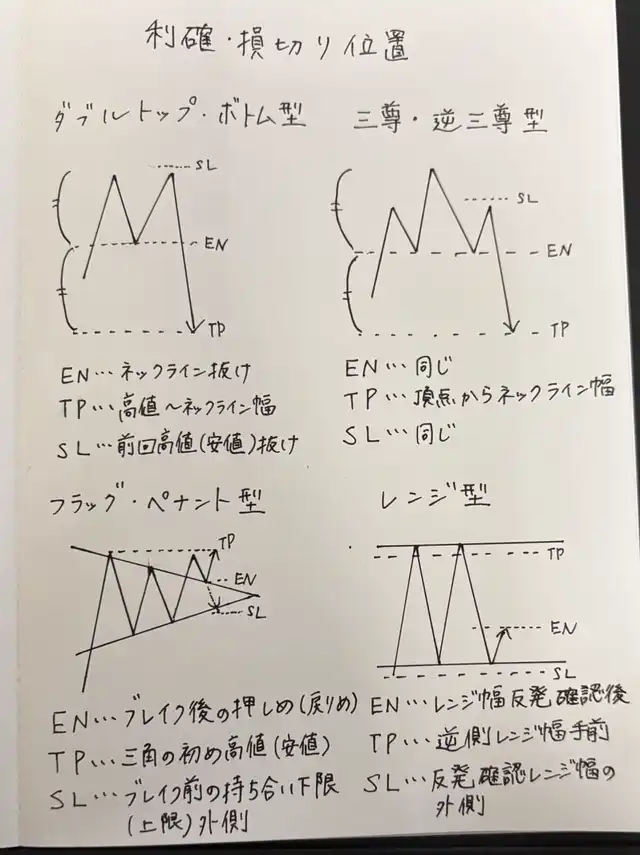 利確・損切り位置
ダブルトップ・ボトム型
SL
EN
TP
EN…ネックライン抜け
TP…高値～ネックライン幅
SL…前回高値(安値)抜け
三尊・逆三尊型
SL
EN
TP
EN…同じ
TP…頂点からネックライン幅
SL…同じ
フラッグ・ペナント型
TP
EN
SL
EN…ブレイク後の押しめ(戻りめ)
TP…三角の初め高値(安値)
SL…ブレイク前の持ち合い下限
(上限)外側
レンジ型
TP
EN
SL
EN…レンジ幅反発確認後
TP…逆側レンジ幅手前
SL…反発確認レンジ幅の
外側